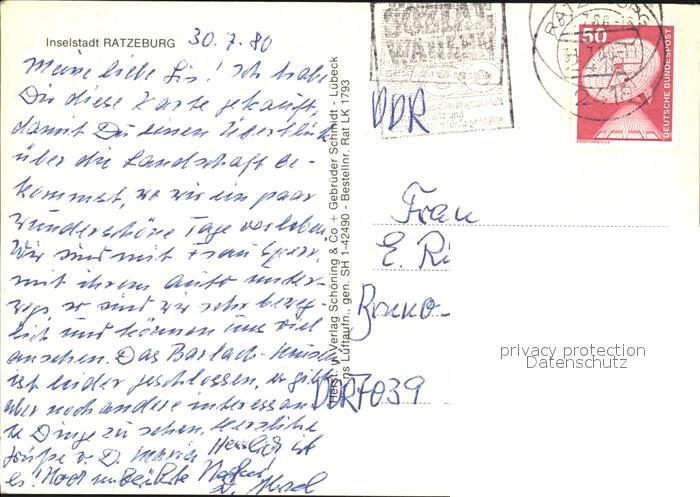 Inselstadt RATZEBURG 30.7.80
Meine liebe Lis! Ich habe
Dir diese Karte gekauft,
damit Du einen Überblick
über die Landschaft be-
kommst, wo wir ein paar
wunderschöne Tage verleben.
Wir sind mit Frau Sperr,
mit ihrem Auto unter-
wegs, so sind wir sehr beweg-
lich und können uns viel
ansehen. Das Barlach-Haus
ist leider geschlossen, es gibt
aber noch andere interessan-
te Dinge zu sehen. Herzliche
Grüße v. D. Maria Herrlich ist
es! Noch unberührte Natur
Verlag Schöning & Co + Gebrüder Schmidt - Lübeck
Luftaufn., gen. SH 1-42490 - Bestellnr. Rat LK 1793
RATZEBURG
50
DEUTSCHE BUNDESPOST
DDR
Frau
E. Ri
Bruno-
DDR 7039
privacy protection
Datenschutz